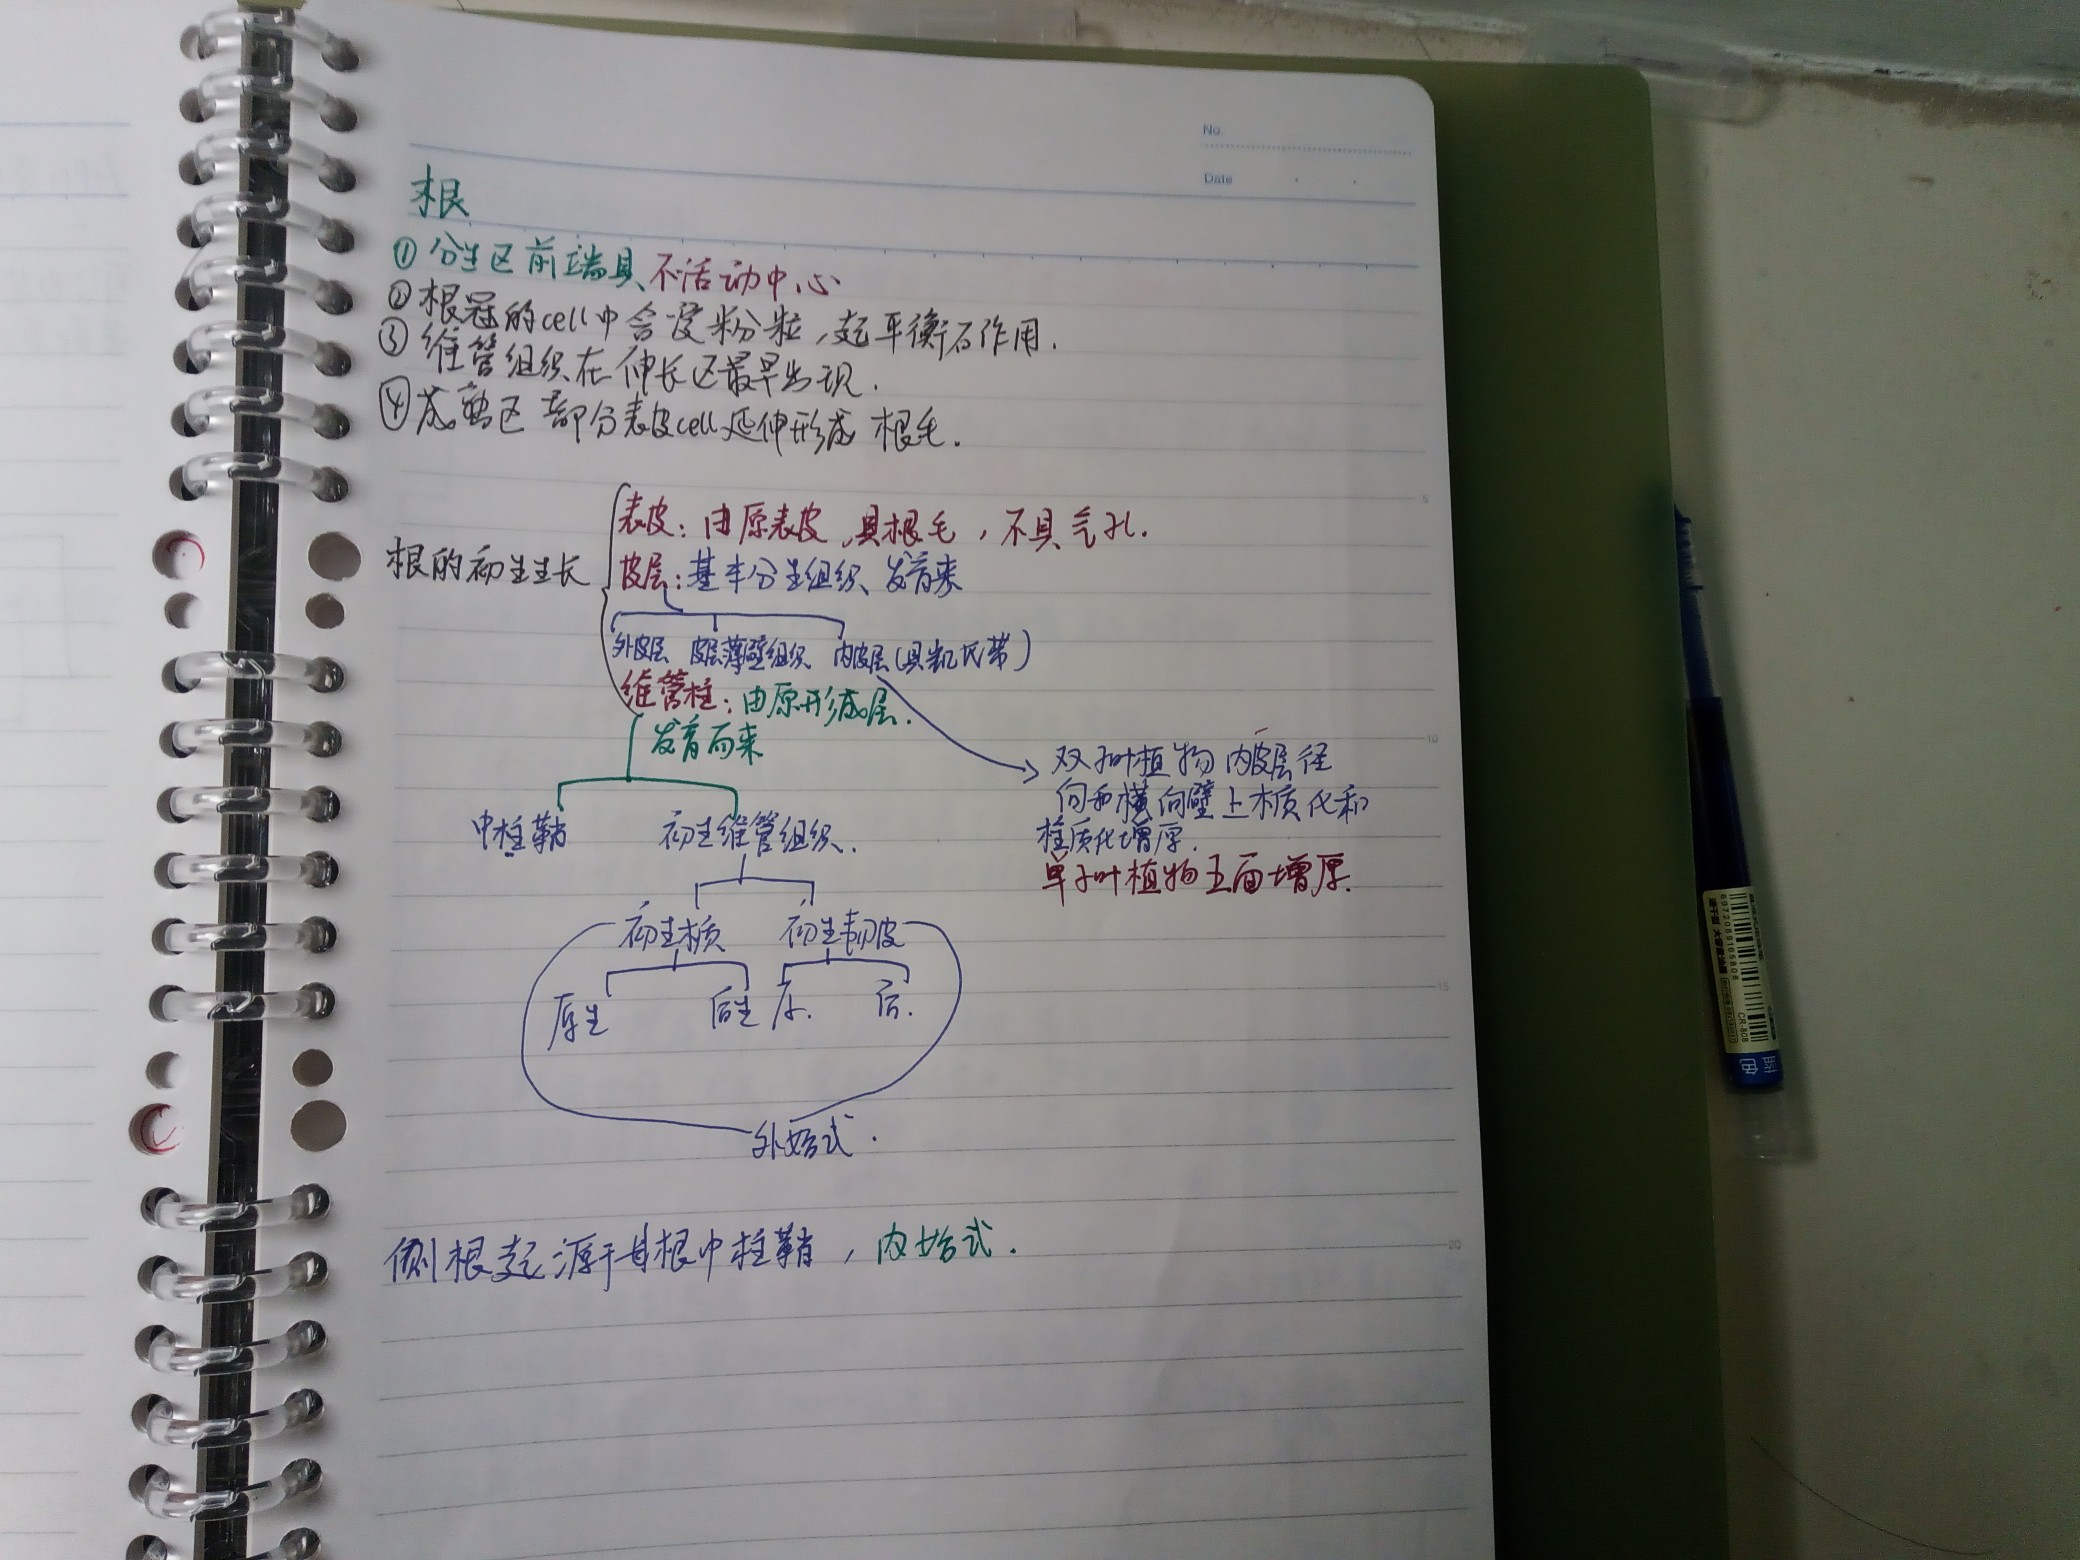 No.
Date
根
①分生区前端具不活动中心
②根冠的cell中含淀粉粒,起平衡石作用.
③维管组织在伸长区最早出现.
④成熟区部分表皮cell延伸形成根毛.
表皮:由原表皮,具根毛,不具气孔.
根的初生生长
皮层:基本分生组织发育来
外皮层 皮层薄壁组织 内皮层(具凯氏带)
维管柱:由原形成层.
发育而来
双子叶植物内皮层径
向和横向壁上木质化和
栓质化增厚.
单子叶植物五面增厚.
中柱鞘 初生维管组织.
初生木质 初生韧皮
原生 后生 原. 后.
外始式.
侧根起源于母根中柱鞘,内始式.
5
10
15
20
6972089165808
CR-808
蓝色